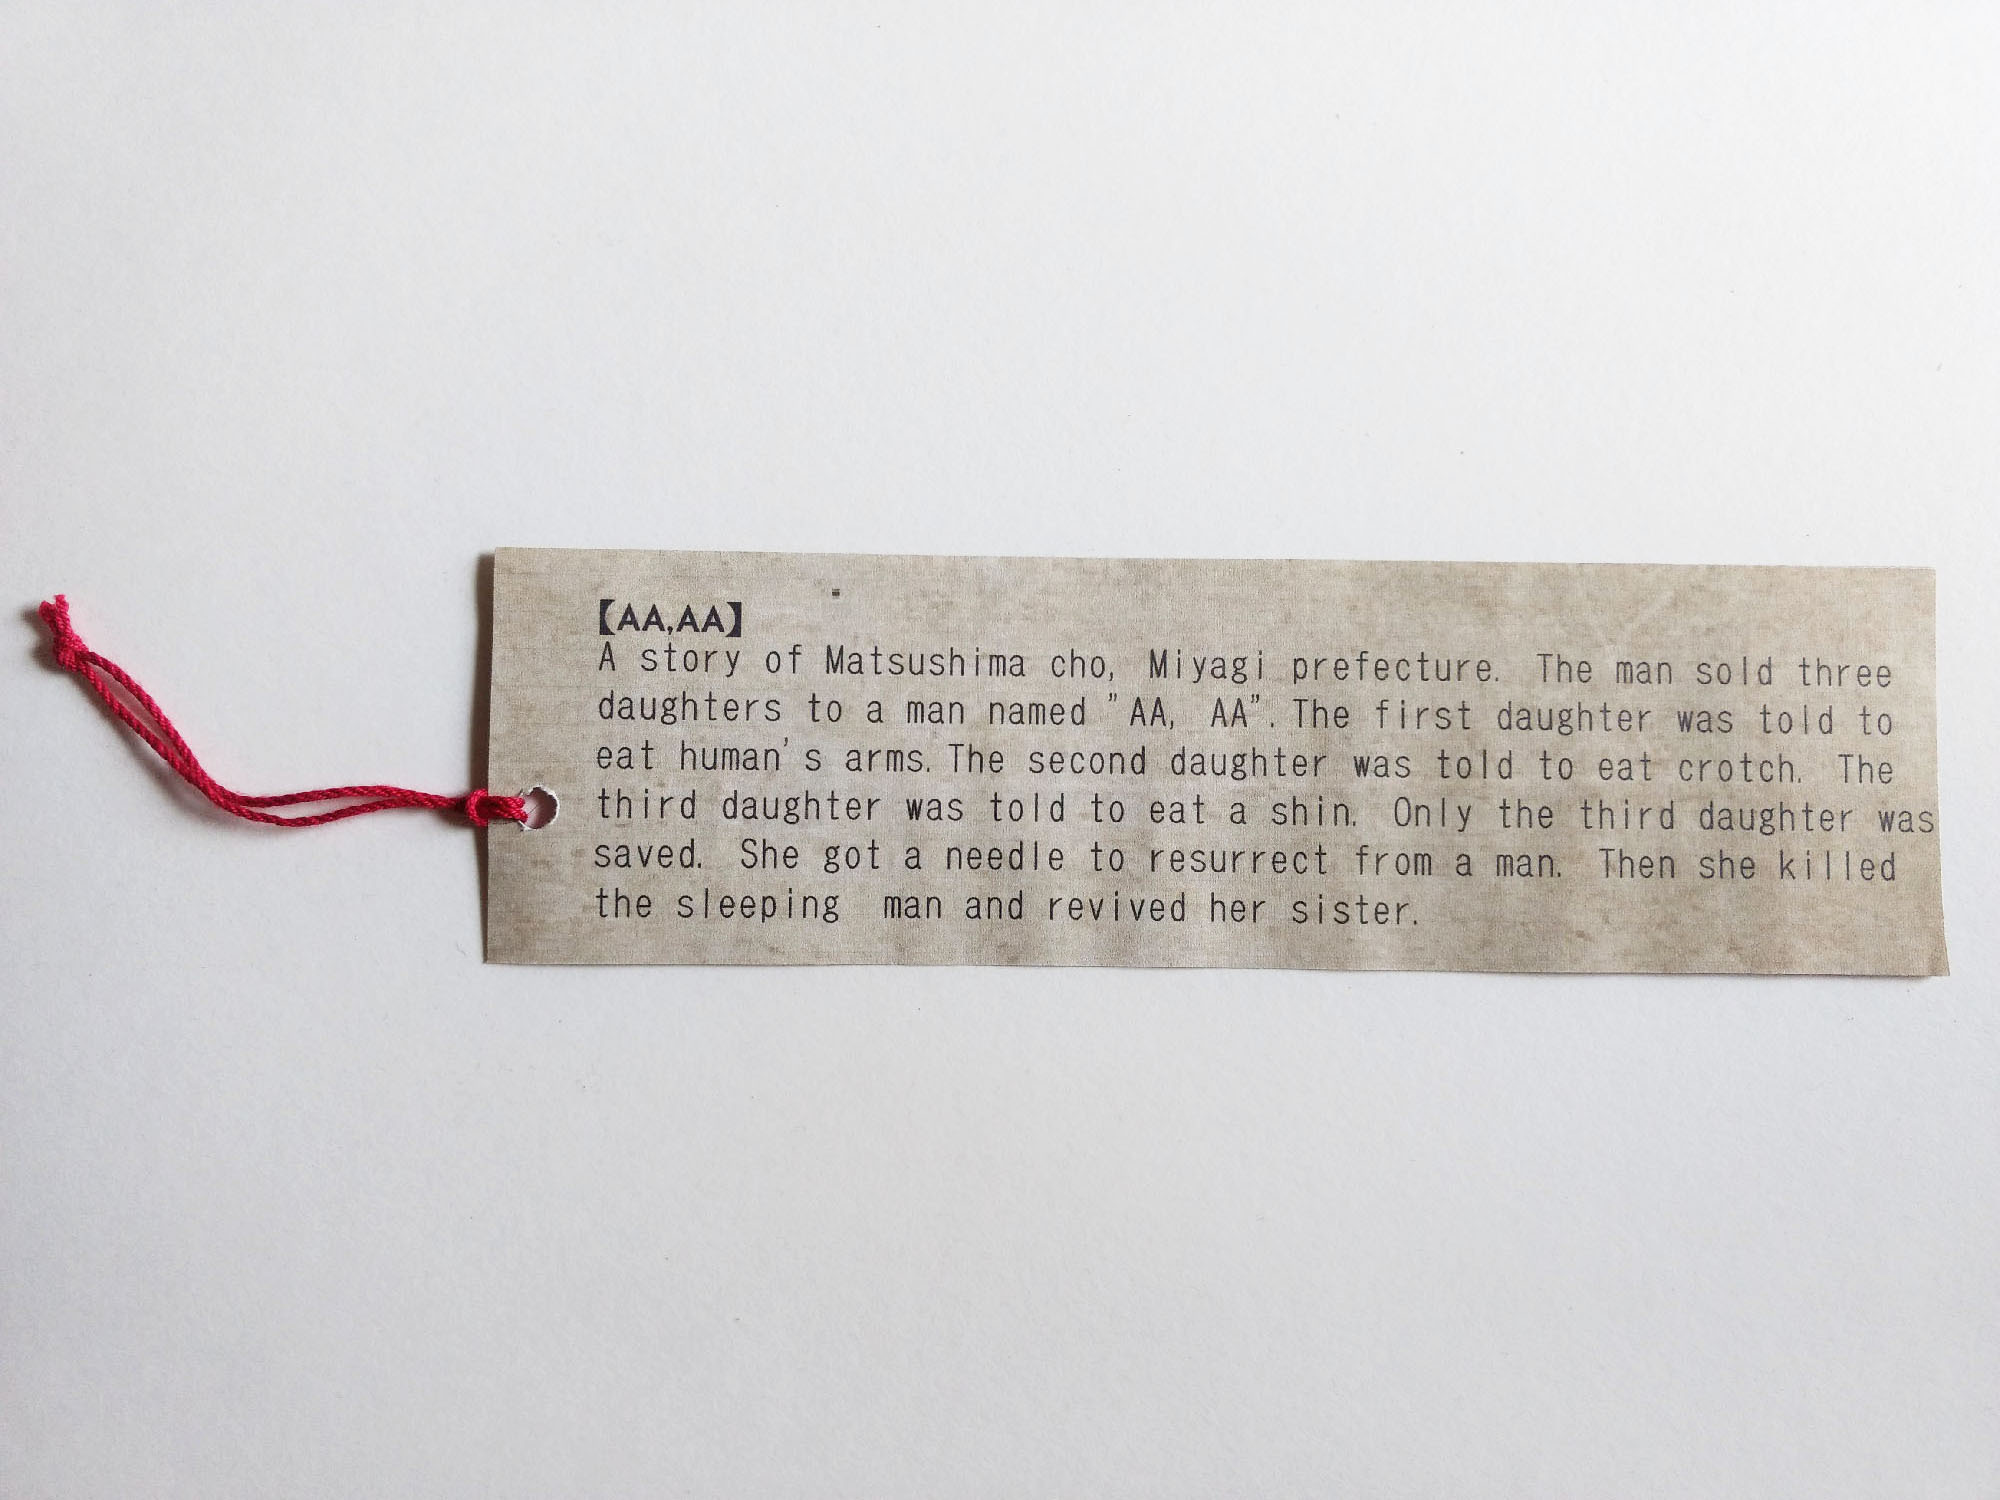 【AA,AA】
A story of Matsushima cho, Miyagi prefecture. The man sold three
daughters to a man named "AA, AA". The first daughter was told to
eat human's arms. The second daughter was told to eat crotch. The
third daughter was told to eat a shin. Only the third daughter was
saved. She got a needle to resurrect from a man. Then she killed
the sleeping man and revived her sister.